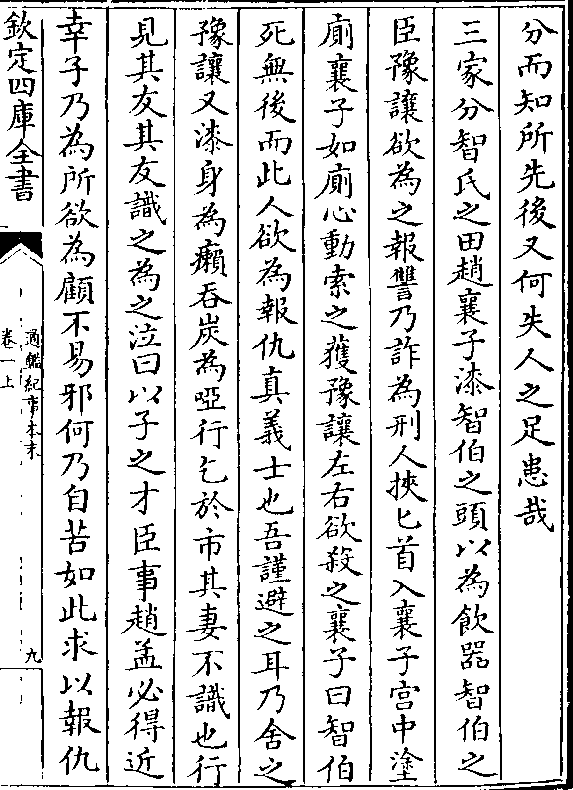 分而知所先後又何失人之足患哉
三家分智氏之田趙襄子漆智伯之頭以為飲器智伯之
臣豫讓欲為之報讐乃詐為刑人挾匕首入襄子宮中塗
廁襄子如廁心動索之獲豫讓左右欲殺之襄子曰智伯
死無後而此人欲為報仇真義士也吾謹避之耳乃舍之
豫讓又漆身為癩吞炭為啞行乞於市其妻不識也行
見其友其友識之為之泣曰以子之才臣事趙孟必得近
幸子乃為所欲為顧不易邪何乃自苦如此求以報仇
欽定四庫全書
通鑑紀事本末
卷一上
九